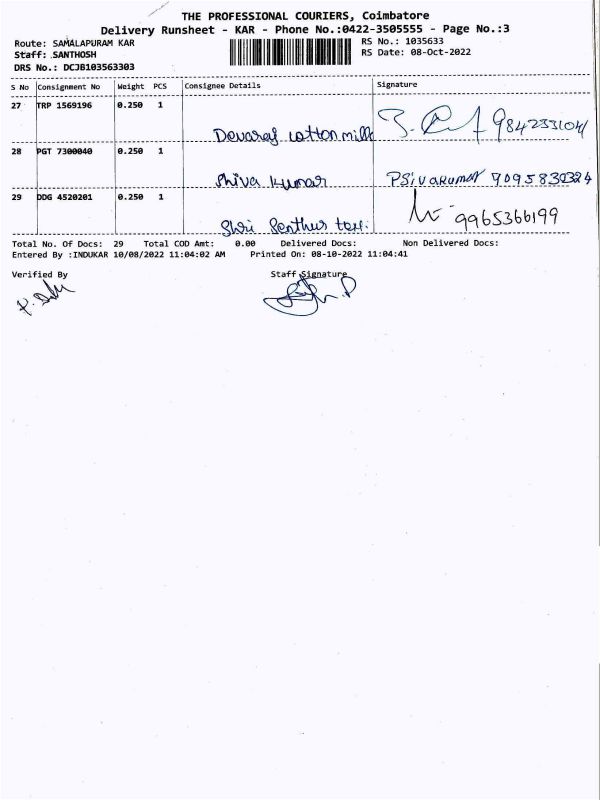 THE PROFESSIONAL COURIERS, Coimbatore
Delivery Runsheet - KAR - Phone No.:0422-3505555 - Page No.:3
Route: SAMALAPURAM KAR
RS No.: 1035633
Staff: SANTHOSH
RS Date: 08-Oct-2022
DRS No.: DCJB103563303
S No Consignment No Weight PCS Consignee Details Signature
27 TRP 1569196 0.250 1
Devaraj cotton mill 9842331041
28 PGT 7300040 0.250 1
Shiva Kumar PSivakumar 9095830324
29 DDG 4520201 0.250 1
Shri Senthur tex. 9965366199
Total No. Of Docs: 29 Total COD Amt: 0.00 Delivered Docs: Non Delivered Docs:
Entered By :INDUKAR 10/08/2022 11:04:02 AM Printed On: 08-10-2022 11:04:41
Verified By Staff Signature